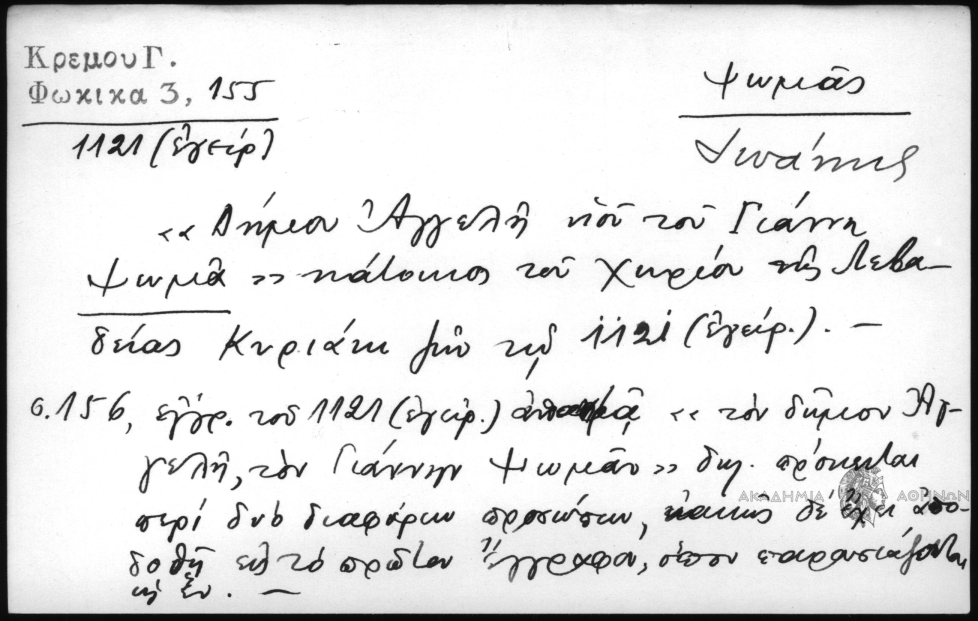 Κρεμου Γ.
Φωκικα 3, 155
1121 (ἐγείρ)
Ψωμιᾶς
« Δήμιον Ἀγγελῆ υἱοῦ τοῦ Γιάννη
Ψωμιᾶ » κάτοικος τοῦ χωρίου τῆς Λεβα-
δείας Κυριάκι ζῶν τῷ 1121 (ἐγείρ.). —
σ. 156, ἔγγρ. τοῦ 1121 (ἐγείρ.) « τὸν δήμιον Ἀγ-
γελῆ, τὸν Γιάννην Ψωμιᾶν » δηλ. πρόκειται
περὶ δύο διαφόρων προσώπων, κακῶς δὲ ἔχει ἀπο-
δοθῆ εἰς τὸ πρῶτον ἔγγραφον, ὅπου παρουσιάζονται
ὡς ἕν. —
ΑΚΑΔΗΜΙΑ ΑΘΗΝΩΝ